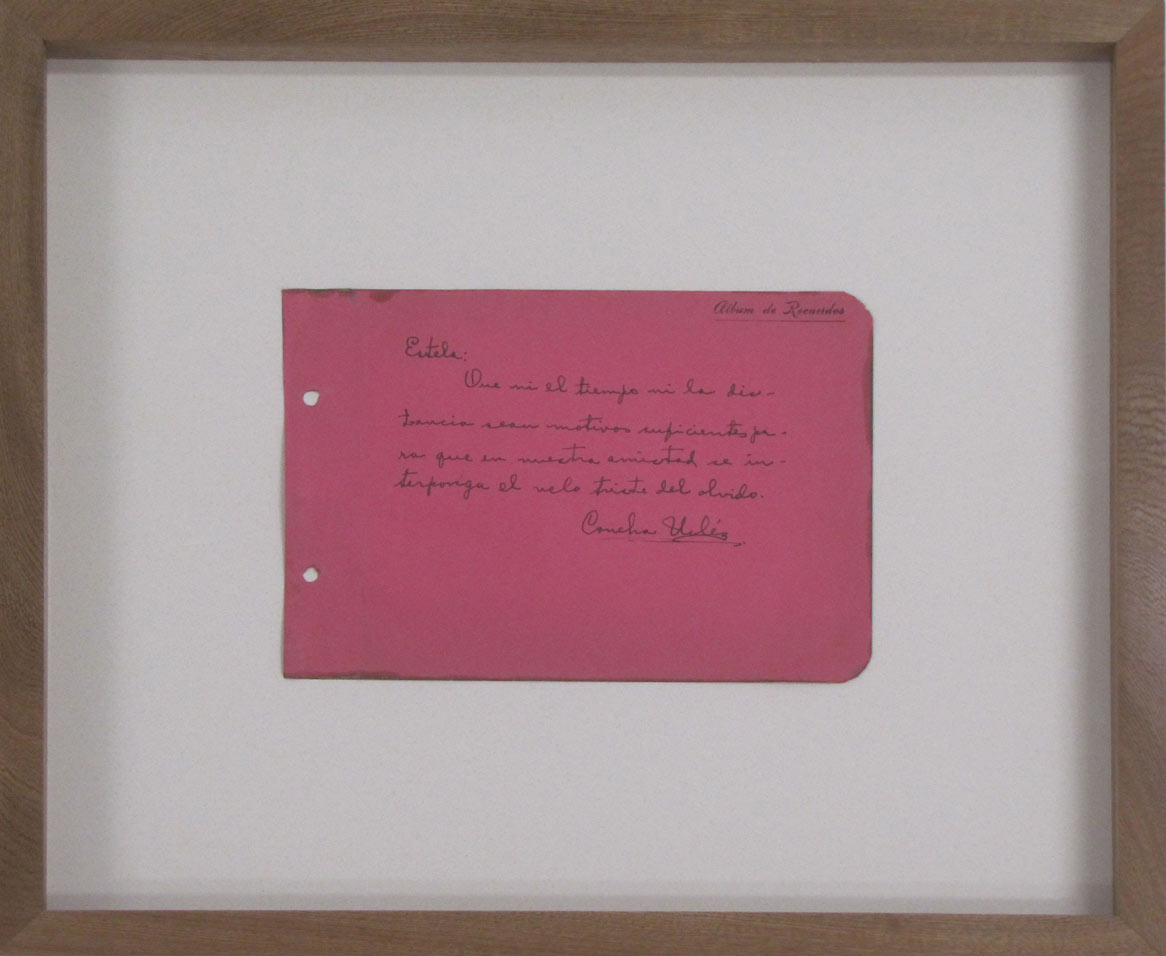 Album de Recuerdos
Estela:
Que ni el tiempo ni la dis-
tancia sean motivos suficientes pa-
ra que en nuestra amistad se in-
terponga el velo triste del olvido.
Concha